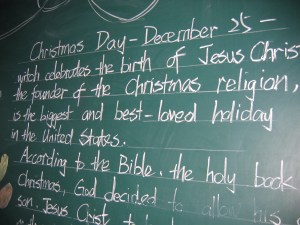 Christmas Day - December 25 -
witch celebrates the birth of Jesus Chris
the founder of the Christmas religion,
is the biggest and best-loved holiday
in the United States.
According to the Bible, the holy book
Christmas, God decided to allow his
son, Jesus Crist to